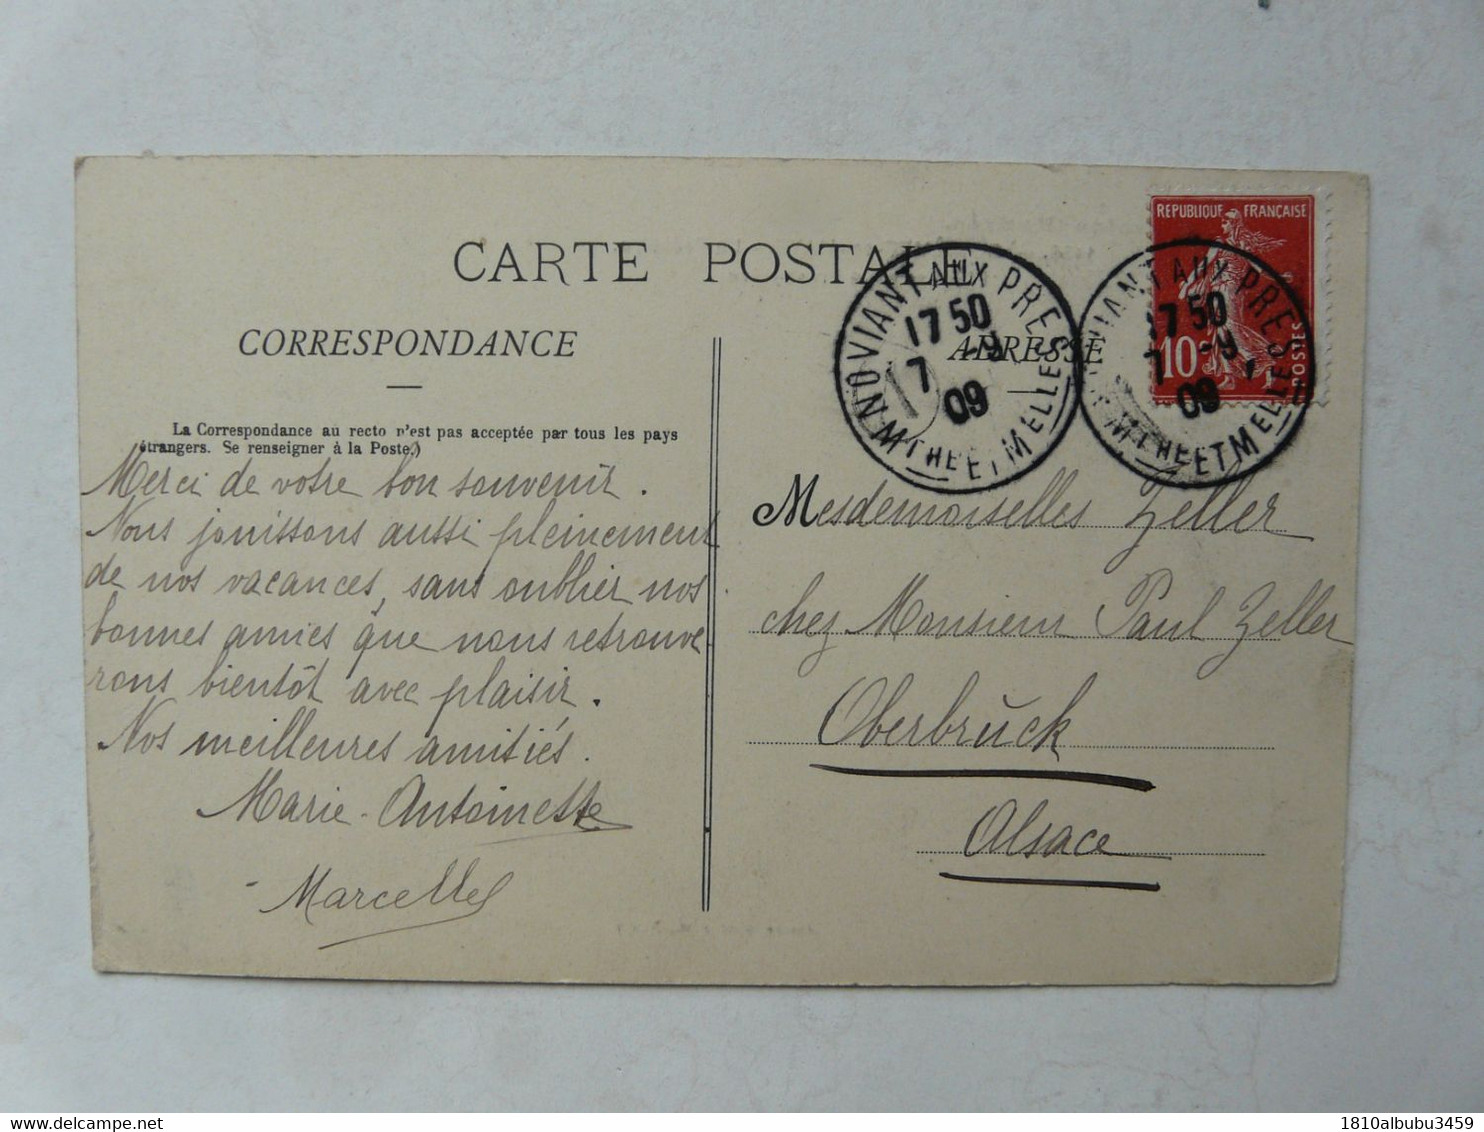 CARTE POSTALE
CORRESPONDANCE
La Correspondance au recto n'est pas acceptée par tous les pays
étrangers. Se renseigner à la Poste.)
Merci de votre bon souvenir.
Nous jouissons aussi pleinement
de nos vacances, sans oublier nos
bonnes amies que nous retrouve
rons bientôt avec plaisir.
Nos meilleures amitiés.
Marie-Antoinette
- Marcelle
ADRESSE
Mesdemoiselles Zeller
chez Monsieur Paul Zeller
Oberbrück
Alsace
RÉPUBLIQUE FRANÇAISE
10c
POSTES
NOVIANT AUX PRES
17 50
7 -9
09
MTHE ET MELLE
NOVIANT AUX PRES
17 50
7 -9
09
MTHE ET MELLE
www.delcampe.net
1810albubu3459